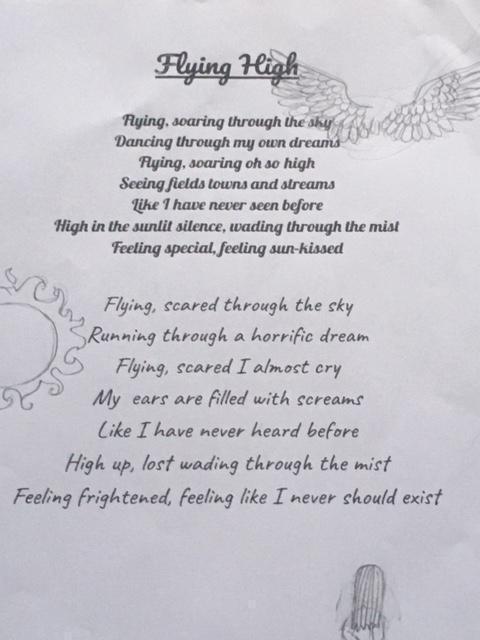 Flying High
Flying, soaring through the sky
Dancing through my own dreams
Flying, soaring oh so high
Seeing fields towns and streams
Like I have never seen before
High in the sunlit silence, wading through the mist
Feeling special, feeling sun-kissed
Flying, scared through the sky
Running through a horrific dream
Flying, scared I almost cry
My ears are filled with screams
Like I have never heard before
High up, lost wading through the mist
Feeling frightened, feeling like I never should exist